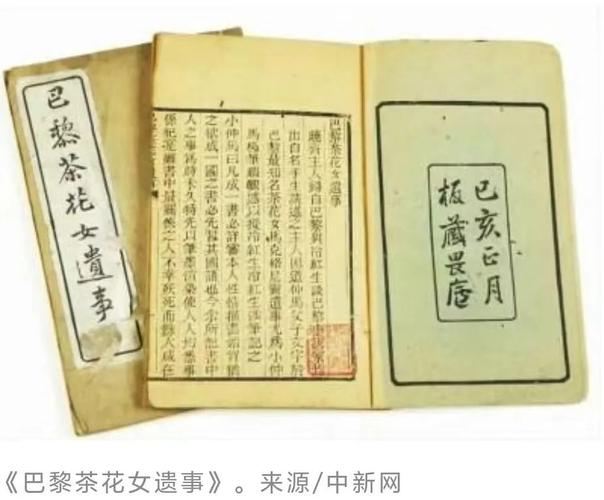 巴黎茶花女遺事
巴黎茶花女遺事
曉齋主人歸自巴黎與冷紅生談巴黎小說家均
出自名手生請述之主人因道仲馬父子文字於
巴黎最知名茶花女馬克格尼爾遺事尤為小仲
馬極筆暇輒述以授冷紅生冷紅生涉筆記之
小仲馬曰凡成一書必詳審本人性情描畫始肖猶
之欲成一國之書必先習其國語也今余所記書中
人之事為時未久特先以筆墨渲染使人人均悉事
係紀寔雖書中最關係之人不幸殀死而餘人咸在
己亥正月
板藏畏廬
《巴黎茶花女遗事》。来源/中新网